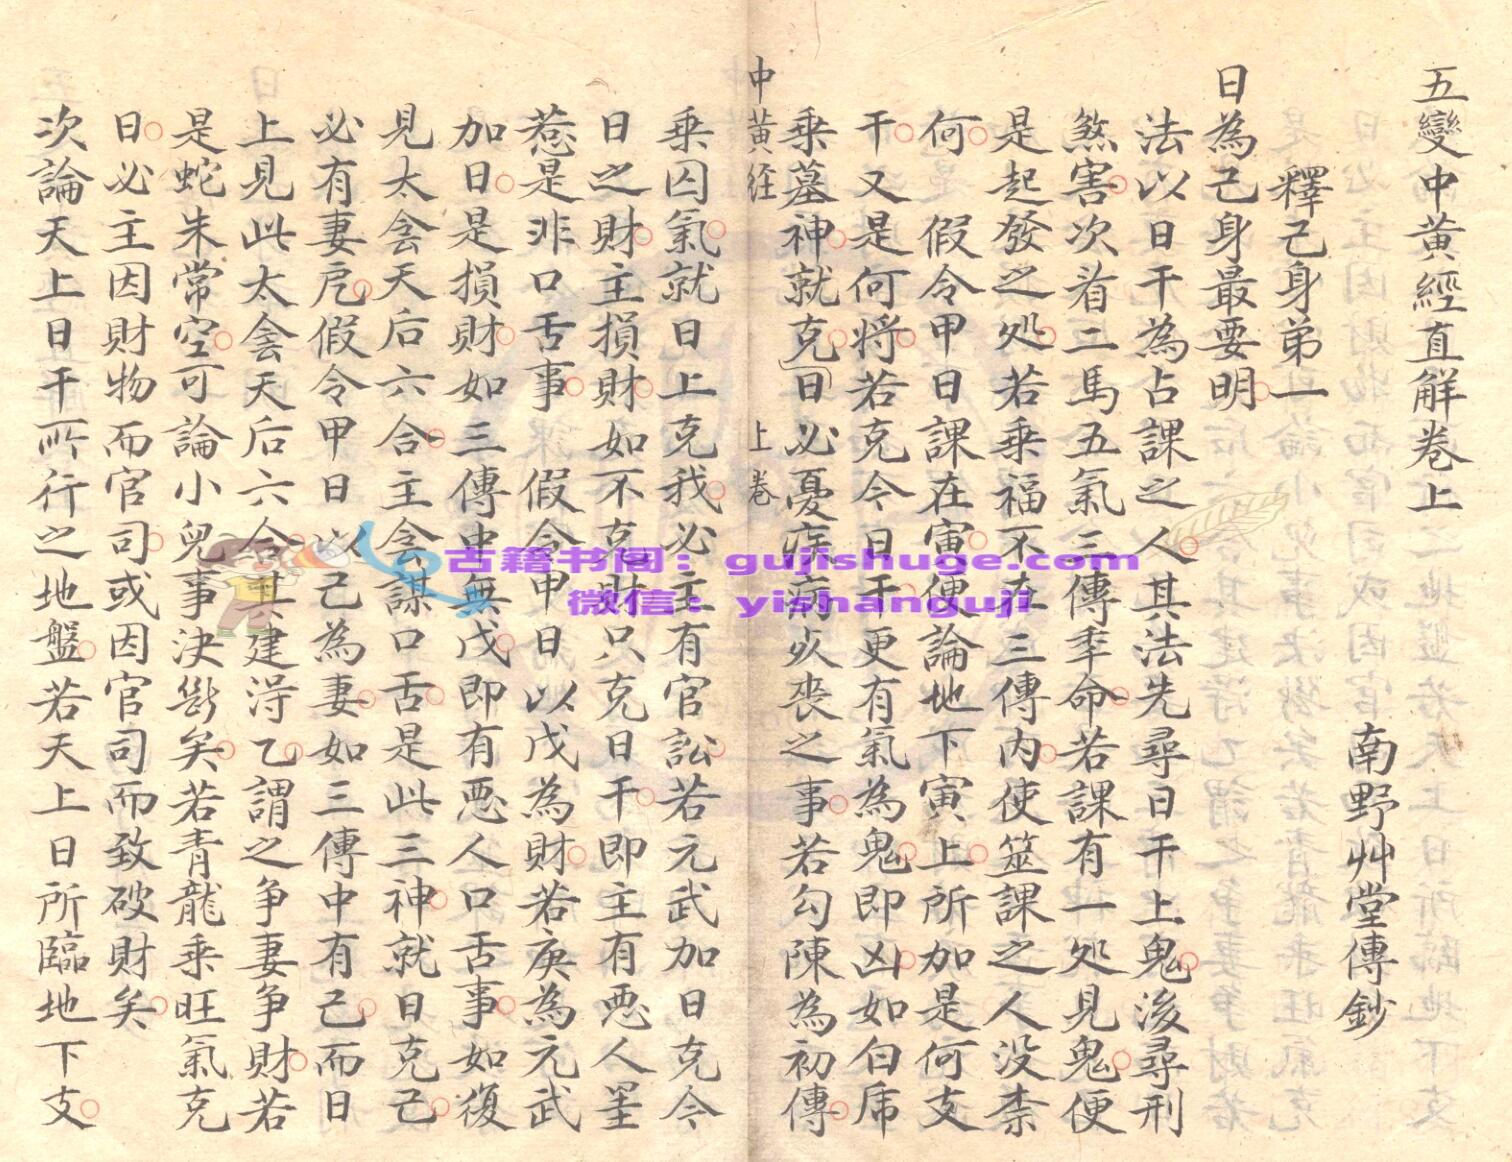 五變中黃經直解卷上
南野艸堂傳鈔
釋己身第一
日為己身最要明
法以日干為占課之人其法先尋日干上鬼後尋刑
煞害次看二馬五氣三傳年命若課有一処見鬼便
是起發之処若乘福不在三傳内使筮課之人没柰
何　假令甲日課在寅便論地下寅上所加是何支
干又是何將若克今日干更有氣為鬼即凶如白虎
乘墓神就克日必憂疾病死喪之事若勾陳為初傳
中黃經　上卷
乘囚氣就日上克我必主有官訟若元武加日克今
日之財主損財如不克財只克日干即主有惡人里
惹是非口舌事　假令甲日以戊為財若庚為元武
加日是損財如三傳中無戊即有惡人口舌事如復
見太侌天后六合主侌謀口舌是此三神就日克己
必有妻戹假令甲日以己為妻如三傳中有己而日
上見此太侌天后六合其建淂乙謂之争妻争財若
是蛇朱常空可論小兒事決斷矣若青龍乘旺氣克
日必主因財物而官司或因官司而致破財矣
次論天上日干所行之地盤若天上日所臨地下支
古籍书阁：gujishuge.com
微信：yishanguji